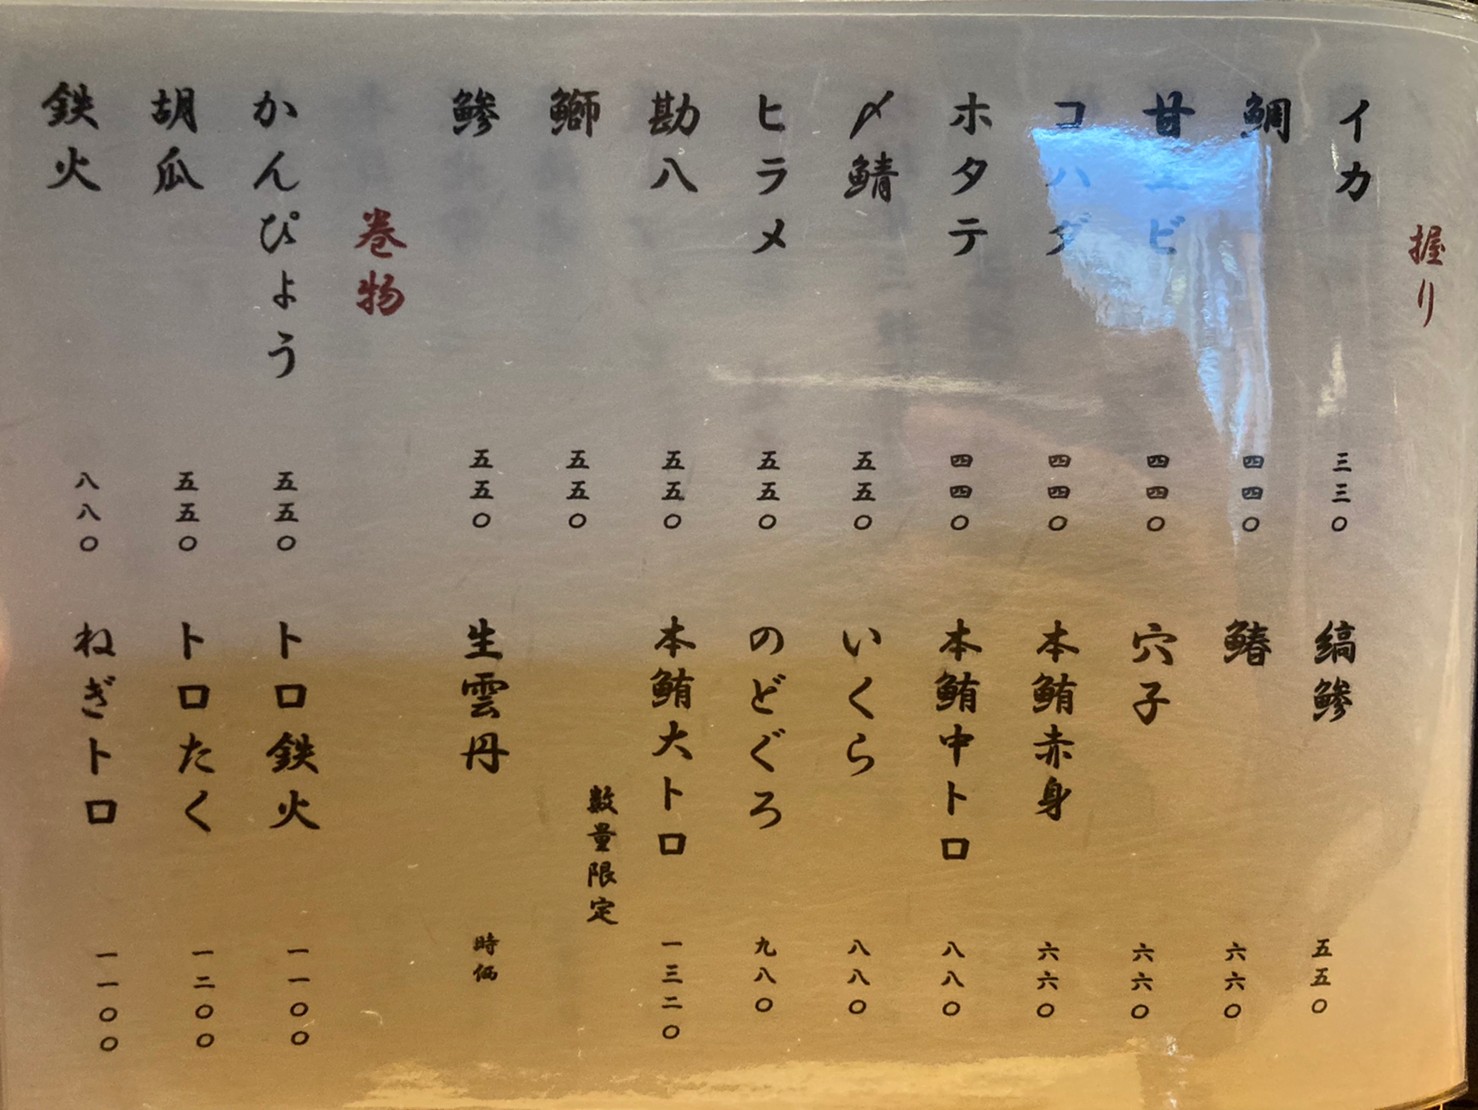 握り
イカ 三三〇
鯛 四四〇
甘エビ 四四〇
コハダ 四四〇
ホタテ 四四〇
〆鯖 五五〇
ヒラメ 五五〇
勘八 五五〇
鰤 五五〇
鯵 五五〇
縞鯵 五五〇
鰆 六六〇
穴子 六六〇
本鮪赤身 六六〇
本鮪中トロ 八八〇
いくら 八八〇
のどぐろ 九八〇
本鮪大トロ 一三二〇
数量限定
生雲丹 時価
巻物
かんぴょう 五五〇
胡瓜 五五〇
鉄火 八八〇
トロ鉄火 一一〇〇
トロたく 一二〇〇
ねぎトロ 一一〇〇